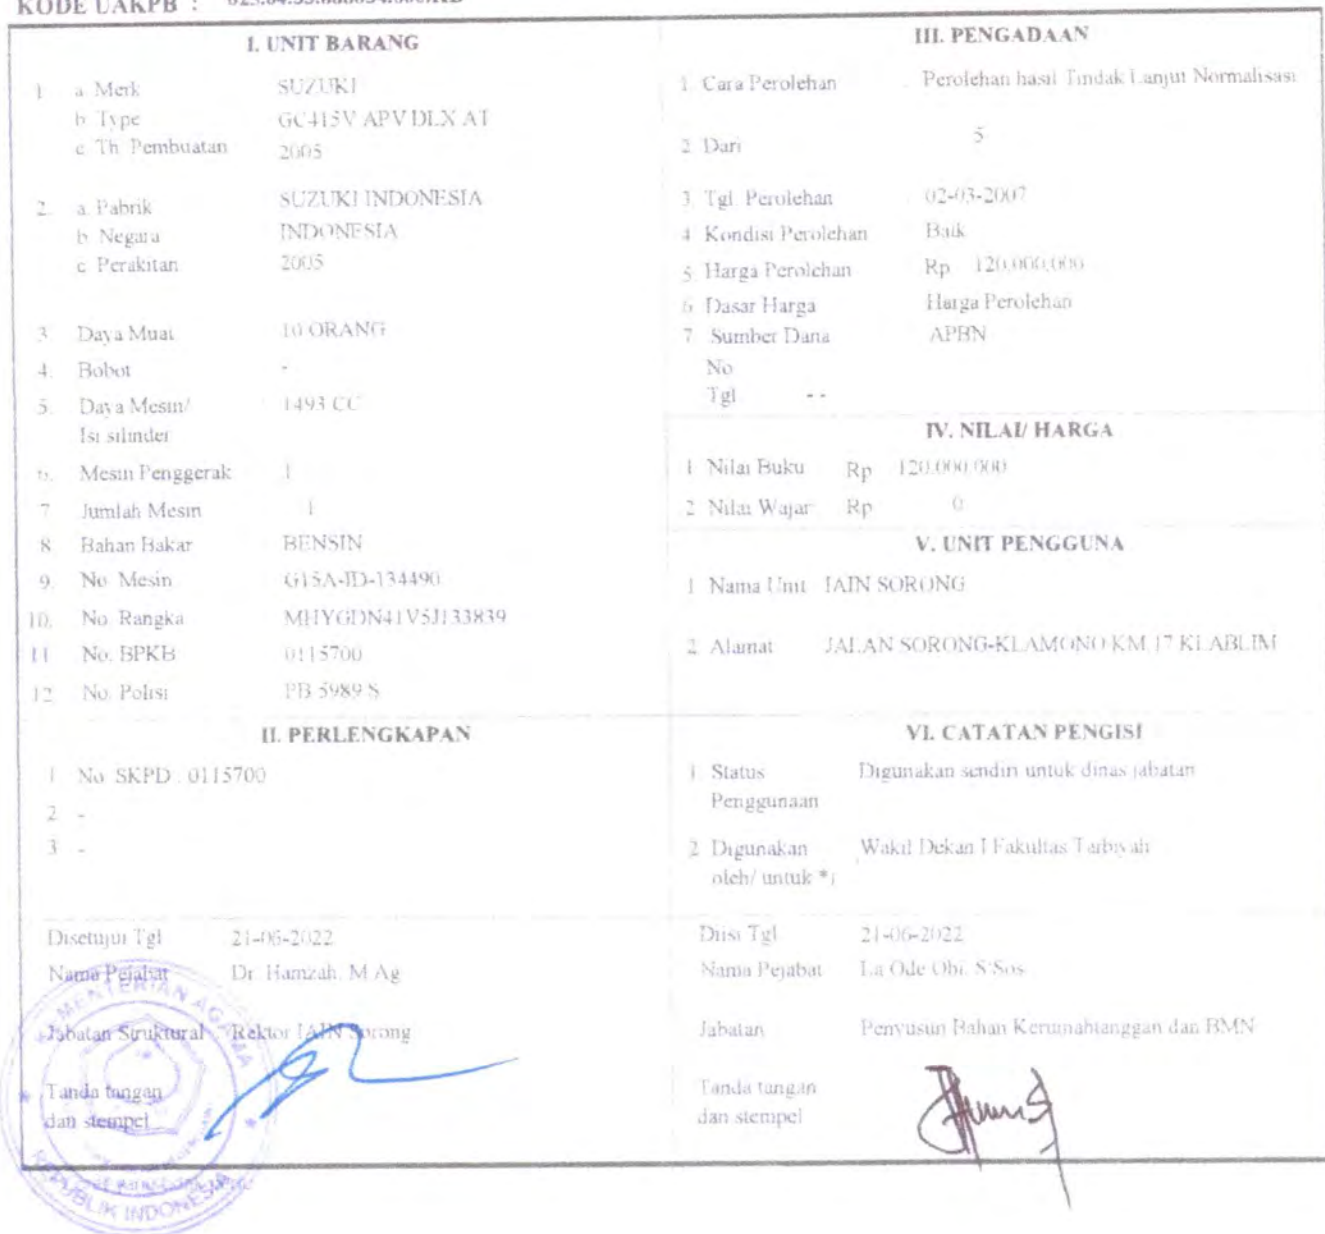 KODE UAKPB :
I. UNIT BARANG
1. a. Merk SUZUKI
b. Type GC415V APV DLX AT
c. Th. Pembuatan 2005
2. a. Pabrik SUZUKI INDONESIA
b. Negara INDONESIA
c. Perakitan 2005
3. Daya Muat 10 ORANG
4. Bobot -
5. Daya Mesin/ 1493 CC
Isi silinder
6. Mesin Penggerak 1
7. Jumlah Mesin 1
8. Bahan Bakar BENSIN
9. No. Mesin G15A-ID-134490
10. No. Rangka MHYGDN41V5J133839
11. No. BPKB 0115700
12. No. Polisi PB 5989 S
II. PERLENGKAPAN
1. No. SKPD : 0115700
2. -
3. -
Disetujui Tgl 21-06-2022
Nama Pejabat Dr. Hamzah, M.Ag
Jabatan Struktural Rektor IAIN Sorong
Tanda tangan
dan stempel
KEMENTERIAN AGAMA
REPUBLIK INDONESIA
III. PENGADAAN
1. Cara Perolehan Perolehan hasil Tindak Lanjut Normalisasi
2. Dari 5
3. Tgl. Perolehan 02-03-2007
4. Kondisi Perolehan Baik
5. Harga Perolehan Rp 120,000,000
6. Dasar Harga Harga Perolehan
7. Sumber Dana APBN
No
Tgl. - -
IV. NILAI/ HARGA
1. Nilai Buku Rp 120.000.000
2. Nilai Wajar Rp 0
V. UNIT PENGGUNA
1. Nama Unit IAIN SORONG
2. Alamat JALAN SORONG-KLAMONO KM.17 KLABLIM
VI. CATATAN PENGISI
1. Status Digunakan sendiri untuk dinas jabatan
Penggunaan
2. Digunakan Wakil Dekan I Fakultas Tarbiyah
oleh/ untuk *)
Diisi Tgl 21-06-2022
Nama Pejabat La Ode Obi, S.Sos
Jabatan Penyusun Bahan Kerumahtanggan dan BMN
Tanda tangan
dan stempel